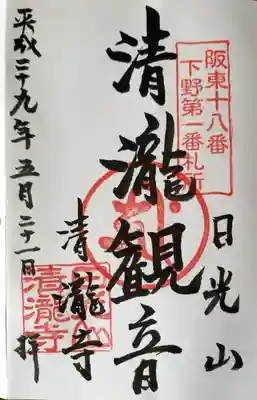 阪東十八番
下野第一番札所
日光山
清瀧観音
清瀧寺
平成二十九年五月二十一日 拝
清瀧寺